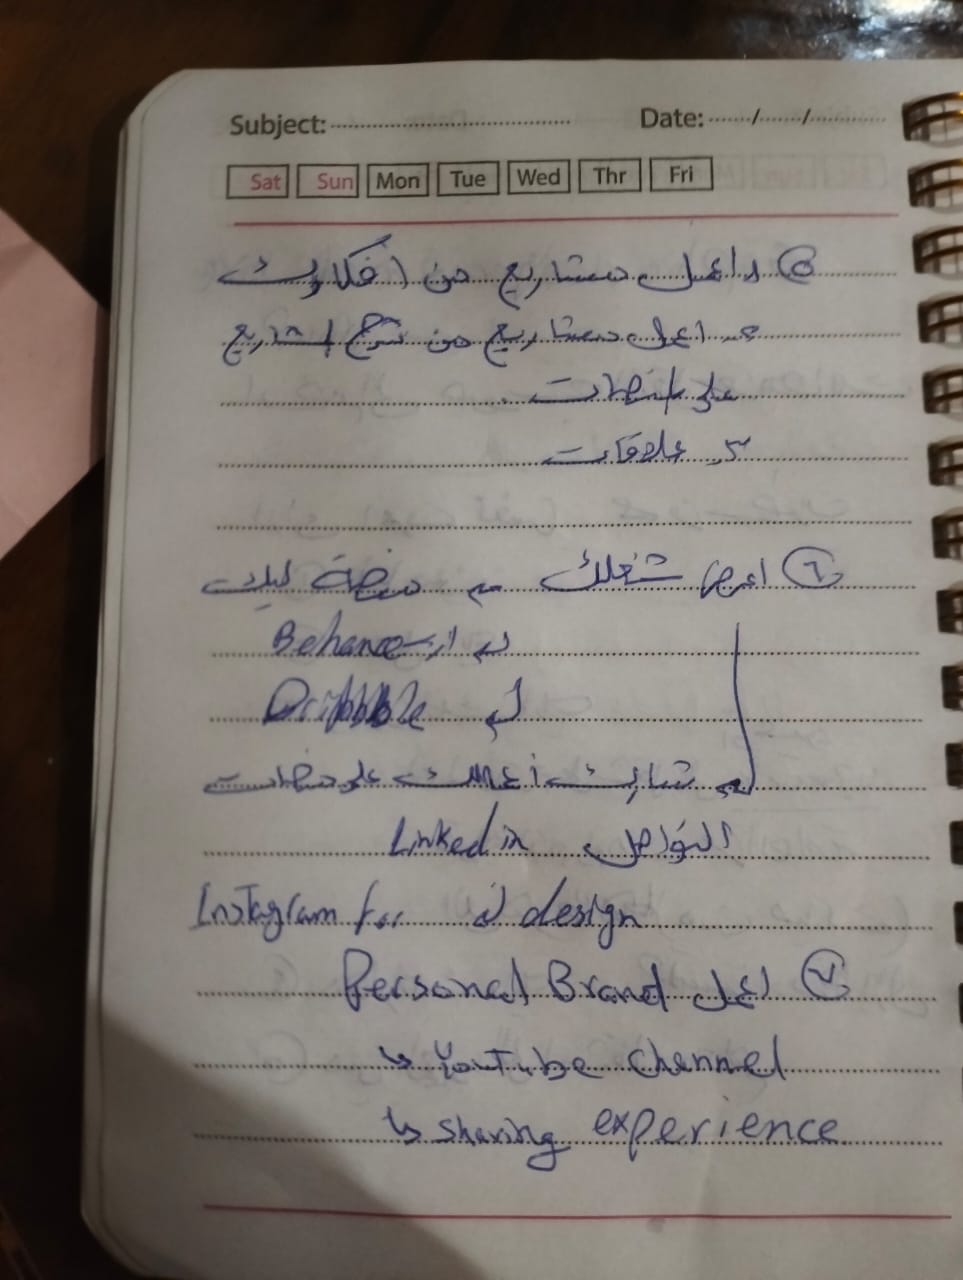 Subject: Date: / /
Sat Sun Mon Tue Wed Thr Fri
٥ اعمل مشاريع من افكارك
اعمل مشاريع من شرح المشاريع
على المنصات
علاقات
٦ اعرض شغلك منصة ليك
Behance
Dribbble
شارك أعمالك على منصات
التواصل Linkedin
Instagram for design
٧ اعمل Personal Brand
↳ YouTube Channel
↳ sharing experience